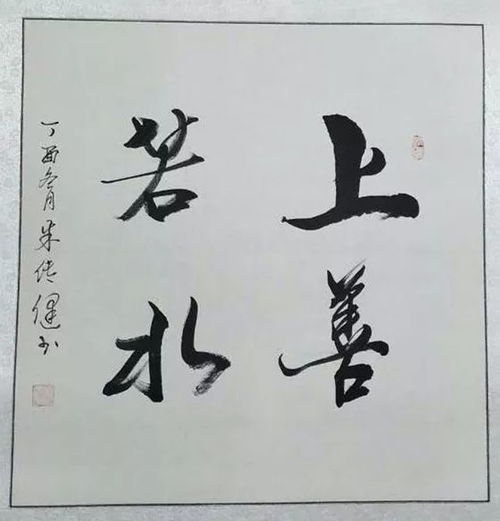 上善
若水
丁酉冬月朱传健书